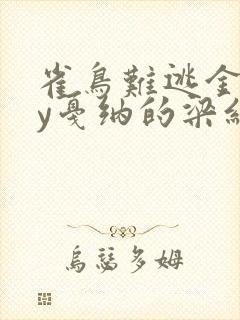 雀鳥難逃全
y戛纳的梁纟
烏瑟多姆